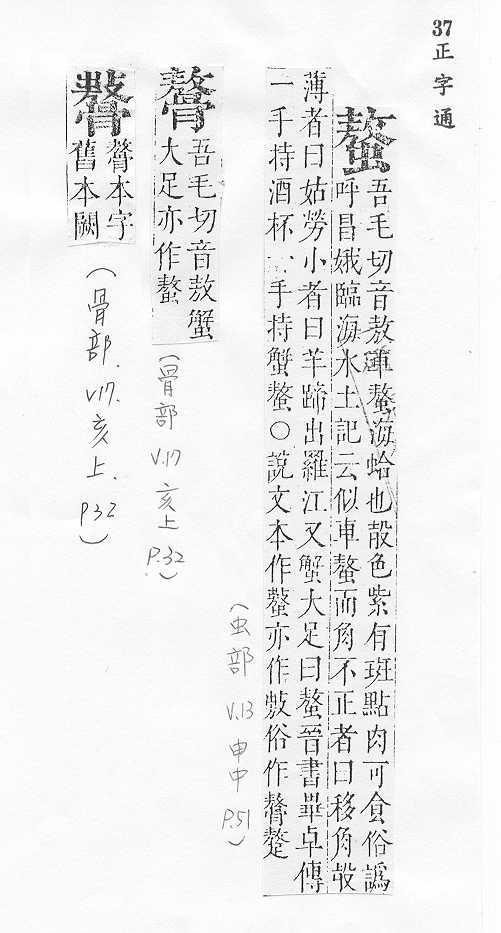 37 正字通
螯
吾毛切音敖車螯海蛤也殻色紫有斑點肉可食俗譌
呼昌娥臨海水土記云似車螯而角不正者曰移角殻
薄者曰姑勞小者曰羊蹄出羅江又蟹大足曰螯晉書畢卓傳
一手持酒杯一手持蟹螯○說文本作𧐢亦作𢾕俗作䯠𧎜
(虫部 V.13 申中 P.51)
䯠
吾毛切音敖蟹
大足亦作螯
(骨部 V.17 亥上 P.32)
䯠本字
舊本闕
(骨部. V17. 亥上. P32)